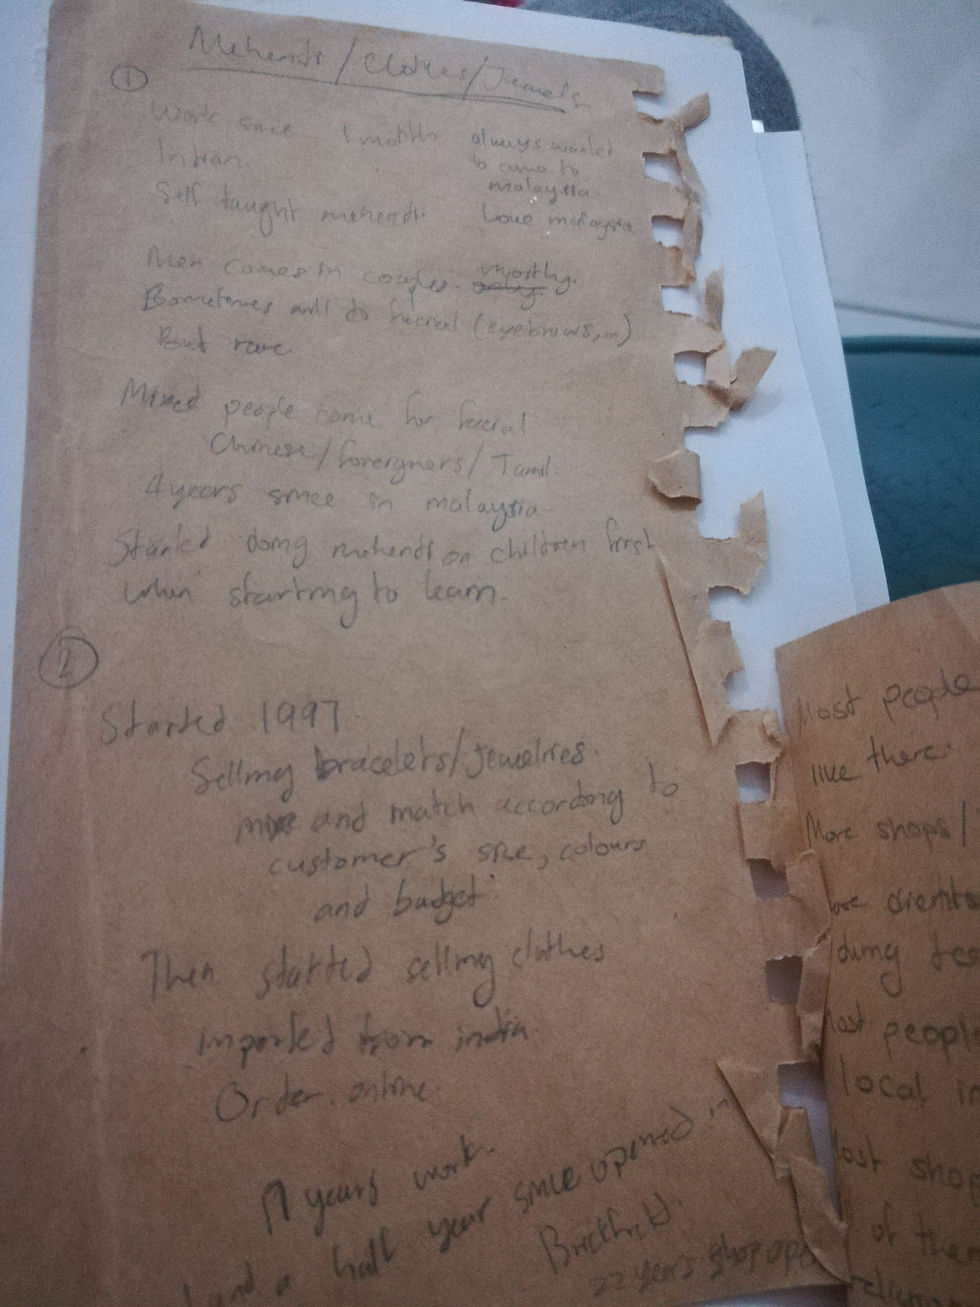 Mehendi/Clothes/Jewels
①
Work since 1 month
Indian.
Self taught mehendi.
always wanted
to come to
malaysia.
Love malaysia
Men comes in couples mostly.
Sometimes will do facial (eyebrows,
But rare
Mixed people come for facial
Chinese/foreigners/Tamil.
4 years since in malaysia.
Started doing mehendi on children first
when starting to learn.
②
Started 1997
Selling bracelets/jewelries.
mix and match according to
customer's size, colours
and budget.
Then started selling clothes
imported from india.
Order online.
years work.
and a half year since opened in
Brickfield.
22 years shop
Most people
like there
More shops/
events
people
local in
shop
of the